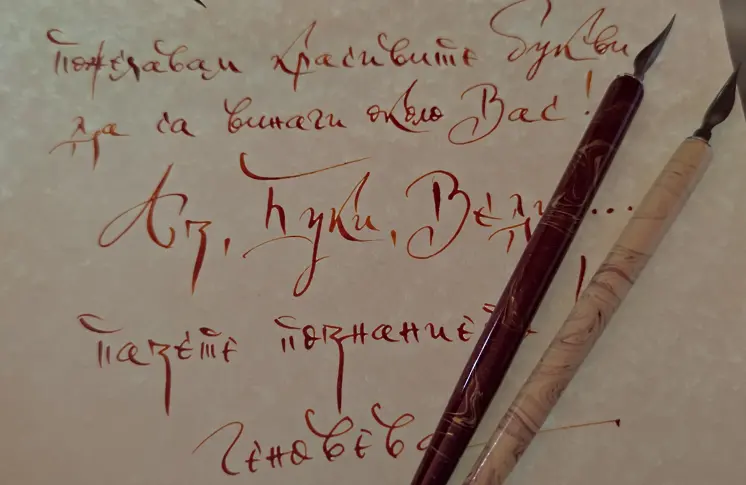 пожелавам красивите букви
да са винаги около Вас!
Аз, Буки, Веди...
пазете познаниет !
Геновева